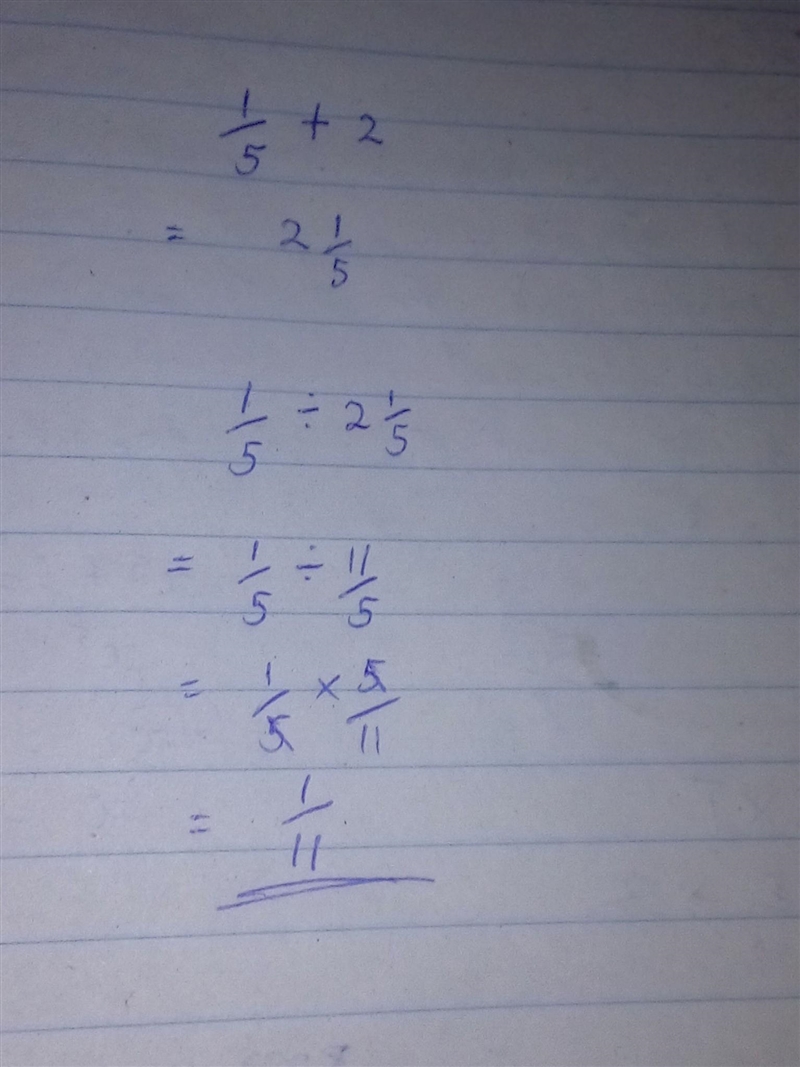 1/5 + 2
= 2 1/5
1/5 ÷ 2 1/5
= 1/5 ÷ 11/5
= 1/5 × 5/11
= 1/11